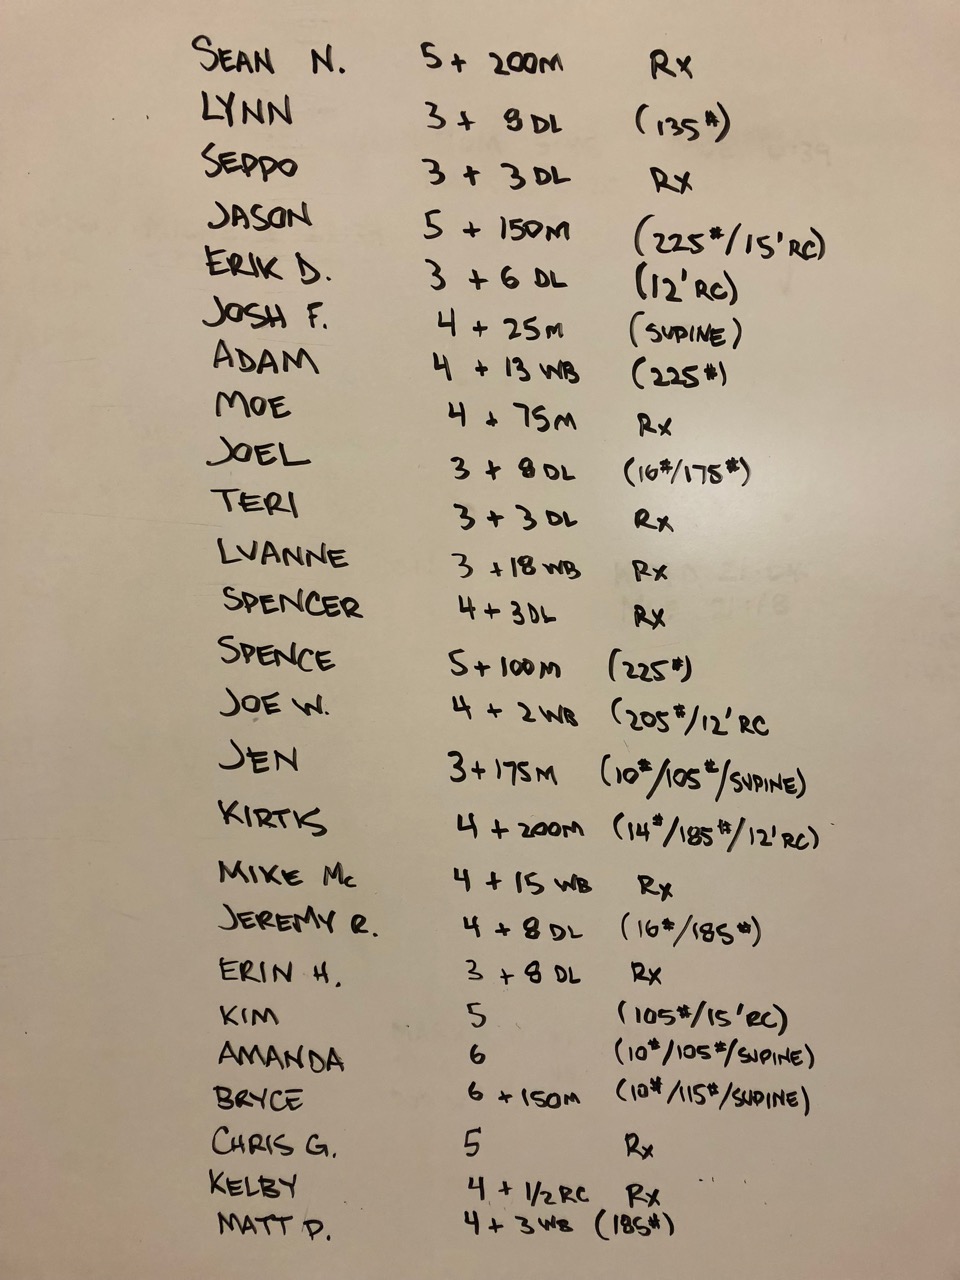 SEAN N. 5 + 200M Rx
LYNN 3 + 8 DL (135#)
SEPPO 3 + 3 DL Rx
JASON 5 + 150M (225#/15' RC)
ERIK D. 3 + 6 DL (12' RC)
JOSH F. 4 + 25M (SUPINE)
ADAM 4 + 13 WB (225#)
MOE 4 + 75M Rx
JOEL 3 + 8 DL (16#/175#)
TERI 3 + 3 DL Rx
LUANNE 3 + 18 WB Rx
SPENCER 4 + 3DL Rx
SPENCE 5 + 100M (225#)
JOE W. 4 + 2 WB (205#/12' RC
JEN 3 + 175M (10#/105#/SUPINE)
KIRTIS 4 + 200M (14#/185#/12' RC)
MIKE Mc 4 + 15 WB Rx
JEREMY R. 4 + 8 DL (16#/185#)
ERIN H. 3 + 8 DL Rx
KIM 5 (105#/15' RC)
AMANDA 6 (10#/105#/SUPINE)
BRYCE 6 + 150M (10#/115#/SUPINE)
CHRIS G. 5 Rx
KELBY 4 + 1/2 RC Rx
MATT P. 4 + 3 WB (185#)